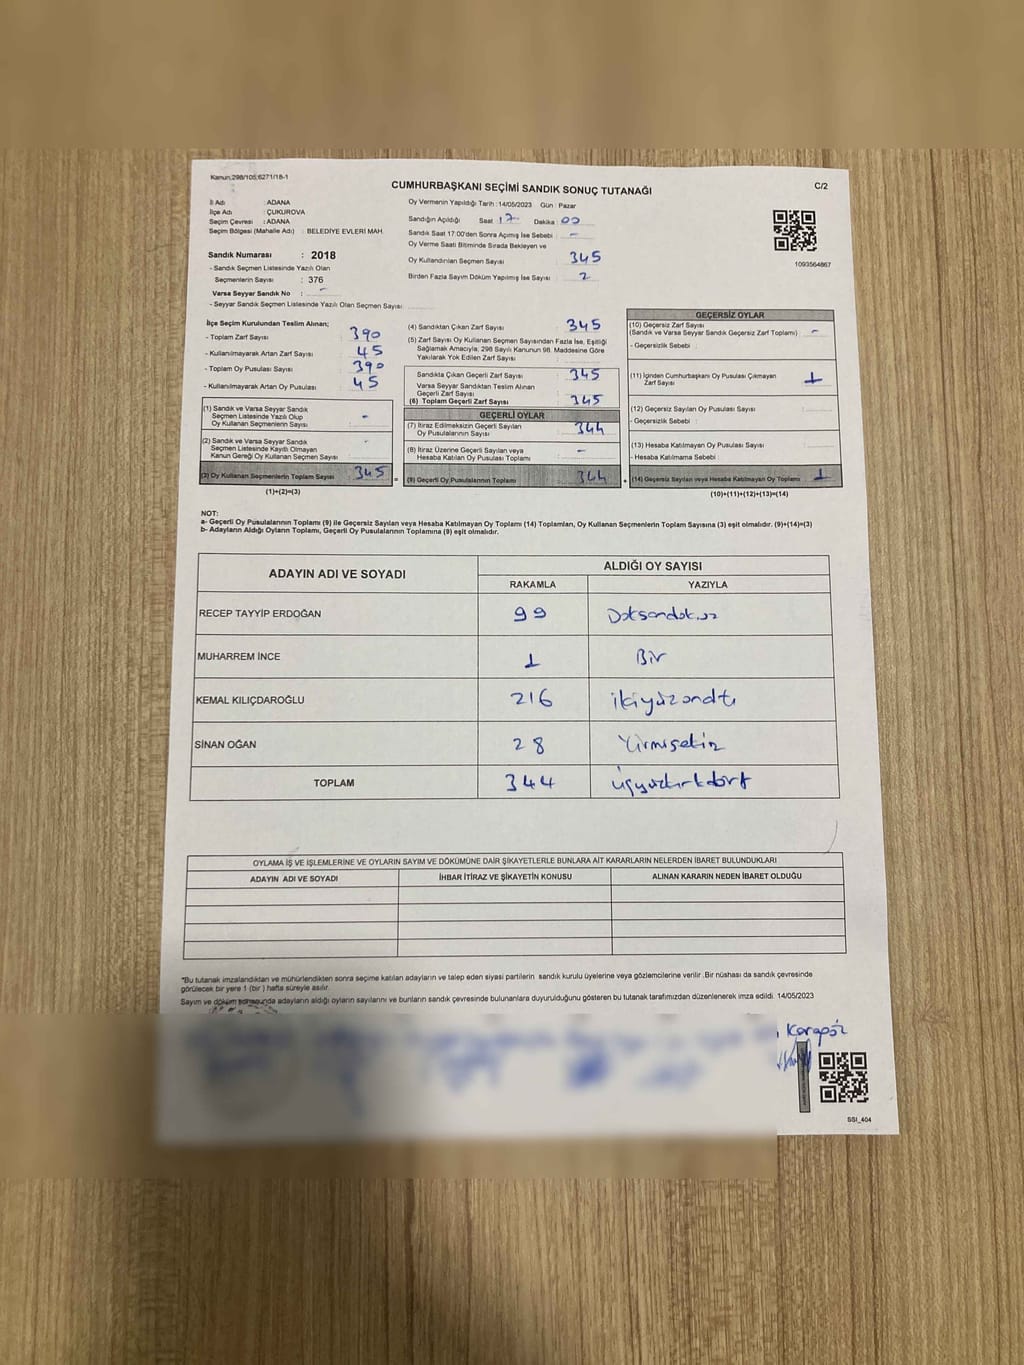 Kanun:298/105;6271/18-1
CUMHURBAŞKANI SEÇİMİ SANDIK SONUÇ TUTANAĞI
C/2
İl Adı : ADANA
İlçe Adı : ÇUKUROVA
Seçim Çevresi : ADANA
Seçim Bölgesi (Mahalle Adı) : BELEDİYE EVLERİ MAH.
Sandık Numarası : 2018
- Sandık Seçmen Listesinde Yazılı Olan
Seçmenlerin Sayısı : 376
Varsa Seyyar Sandık No : -
- Seyyar Sandık Seçmen Listesinde Yazılı Olan Seçmen Sayısı
Oy Vermenin Yapıldığı Tarih : 14/05/2023 Gün : Pazar
Sandığın Açıldığı Saat 17 Dakika : 00
Sandık Saat 17:00'den Sonra Açılmış İse Sebebi : -
Oy Verme Saati Bitiminde Sırada Bekleyen ve
Oy Kullandırılan Seçmen Sayısı 345
Birden Fazla Sayım Döküm Yapılmış İse Sayısı : 2
1093564867
İlçe Seçim Kurulundan Teslim Alınan;
- Toplam Zarf Sayısı 390
- Kullanılmayarak Artan Zarf Sayısı 45
- Toplam Oy Pusulası Sayısı 390
- Kullanılmayarak Artan Oy Pusulası 45
(1) Sandık ve Varsa Seyyar Sandık
Seçmen Listesinde Yazılı Olup
Oy Kullanan Seçmenlerin Sayısı -
(2) Sandık ve Varsa Seyyar Sandık
Seçmen Listesinde Kayıtlı Olmayan
Kanun Gereği Oy Kullanan Seçmen Sayısı -
(3) Oy Kullanan Seçmenlerin Toplam Sayısı 345
(1)+(2)=(3)
=
(4) Sandıktan Çıkan Zarf Sayısı 345
(5) Zarf Sayısı Oy Kullanan Seçmen Sayısından Fazla İse, Eşitliği
Sağlamak Amacıyla, 298 Sayılı Kanunun 98. Maddesine Göre
Yakılarak Yok Edilen Zarf Sayısı
Sandıkta Çıkan Geçerli Zarf Sayısı 345
Varsa Seyyar Sandıktan Teslim Alınan
Geçerli Zarf Sayısı
(6) Toplam Geçerli Zarf Sayısı 345
GEÇERLİ OYLAR
(7) İtiraz Edilmeksizin Geçerli Sayılan
Oy Pusulalarının Sayısı 344
(8) İtiraz Üzerine Geçerli Sayılan veya
Hesaba Katılan Oy Pusulası Toplamı -
(9) Geçerli Oy Pusulalarının Toplamı 344
+
GEÇERSİZ OYLAR
(10) Geçersiz Zarf Sayısı
(Sandık ve Varsa Seyyar Sandık Geçersiz Zarf Toplamı) -
- Geçersizlik Sebebi :
(11) İçinden Cumhurbaşkanı Oy Pusulası Çıkmayan
Zarf Sayısı 1
(12) Geçersiz Sayılan Oy Pusulası Sayısı
- Geçersizlik Sebebi :
(13) Hesaba Katılmayan Oy Pusulası Sayısı
- Hesaba Katılmama Sebebi :
(14) Geçersiz Sayılan veya Hesaba Katılmayan Oy Toplamı 1
(10)+(11)+(12)+(13)=(14)
NOT:
a- Geçerli Oy Pusulalarının Toplamı (9) ile Geçersiz Sayılan veya Hesaba Katılmayan Oy Toplamı (14) Toplamları, Oy Kullanan Seçmenlerin Toplam Sayısına (3) eşit olmalıdır. (9)+(14)=(3)
b- Adayların Aldığı Oyların Toplamı, Geçerli Oy Pusulalarının Toplamına (9) eşit olmalıdır.
ADAYIN ADI VE SOYADI
ALDIĞI OY SAYISI
RAKAMLA YAZIYLA
RECEP TAYYİP ERDOĞAN 99 Doksandokuz
MUHARREM İNCE 1 Bir
KEMAL KILIÇDAROĞLU 216 ikiyüzonaltı
SİNAN OĞAN 28 Yirmisekiz
TOPLAM 344 üçyüzkırkdört
OYLAMA İŞ VE İŞLEMLERİNE VE OYLARIN SAYIM VE DÖKÜMÜNE DAİR ŞİKAYETLERLE BUNLARA AİT KARARLARIN NELERDEN İBARET BULUNDUKLARI
ADAYIN ADI VE SOYADI İHBAR İTİRAZ VE ŞİKAYETİN KONUSU ALINAN KARARIN NEDEN İBARET OLDUĞU
"Bu tutanak imzalandıktan ve mühürlendikten sonra seçime katılan adayların ve talep eden siyasi partilerin sandık kurulu üyelerine veya gözlemcilerine verilir. Bir nüshası da sandık çevresinde
görülecek bir yere 1 (bir) hafta süreyle asılır.
Sayım ve döküm sonucunda adayların aldığı oyların sayılarını ve bunların sandık çevresinde bulunanlara duyurulduğunu gösteren bu tutanak tarafımızdan düzenlenerek imza edildi. 14/05/2023
Karagöz
SSI_404